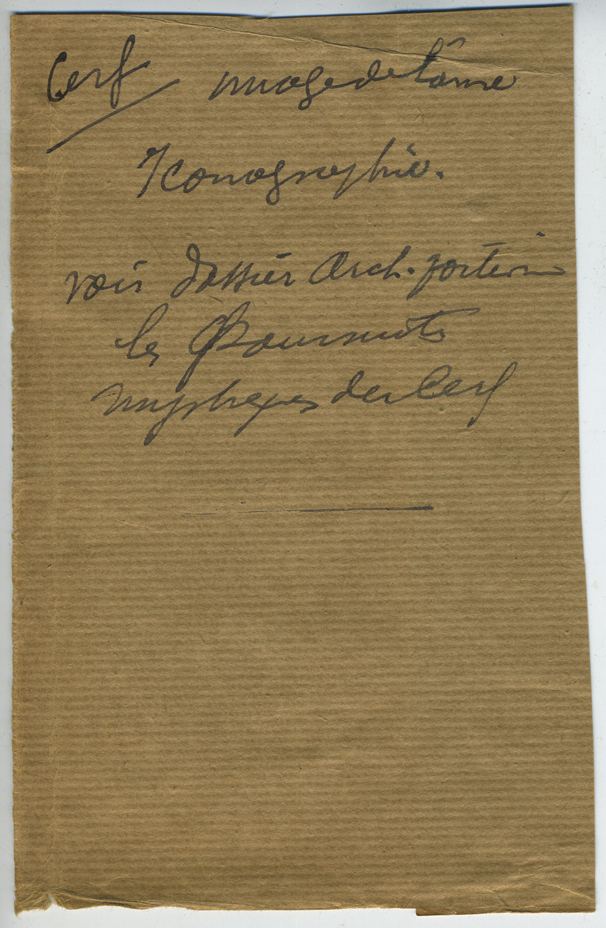 Cerf image de l'âme
Iconographie.
voir dossier Arch.
les
mystiques du Cerf